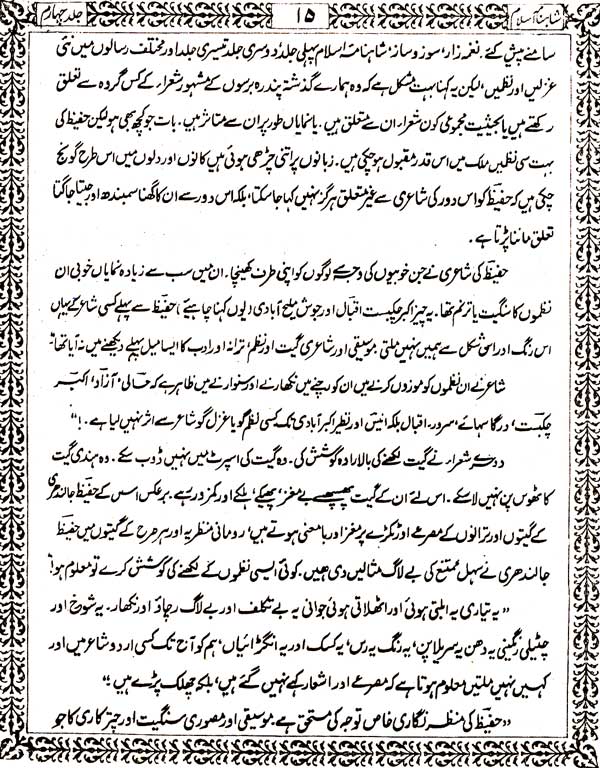 شاہنامۂ اسلام
۱۵
جلد چہارم
سامنے پیش کئے۔ نغمہ زار، سوز و ساز، شاہنامۂ اسلام پہلی جلد، دوسری جلد، تیسری جلد اور مختلف رسالوں میں نئی
غزلیں اور نظمیں، لیکن یہ کہنا بہت مشکل ہے کہ وہ ہمارے گذشتہ پندرہ برسوں کے مشہور شعراء کے کس گروہ سے تعلق
رکھتے ہیں یا بحیثیت مجموعی کون شعراء ان سے متعلق ہیں۔ یا نمایاں طور پر ان سے متاثر ہیں۔ بات جو کچھ بھی ہو لیکن حفیظ کی
بہت سی نظمیں ملک میں اس قدر مقبول ہو چکی ہیں۔ زبانوں پر اتنی چڑھی ہوئی ہیں کانوں اور دلوں میں اس طرح گونج
چکی ہیں کہ حفیظ کو اس دور کی شاعری سے غیر متعلق ہرگز نہیں کہا جا سکتا، بلکہ اس دور سے ان کا گھنا سمبندھ اور جیتا جاگتا
تعلق ماننا پڑتا ہے۔
حفیظ کی شاعری نے جن خوبیوں کی وجہ سے لوگوں کو اپنی طرف کھینچا۔ ان میں سب سے زیادہ نمایاں خوبی ان
نظموں کا سنگیت یا ترنم تھا۔ یہ چیز اکبر چکبست اقبال اور جوش ملیح آبادی (یوں کہنا چاہیے) حفیظ سے پہلے کسی شاعر کے یہاں
اس رنگ اور اس شکل سے ہمیں نہیں ملتی موسیقی اور شاعری گیت اور نظم، ترانہ اور ادب کا ایسا میل پہلے دیکھنے میں نہ آیا تھا"
شاعر نے ان نظموں کو موزوں کرنے میں ان کو رچنے میں نکھارنے اور سنوارنے میں ظاہر ہے کہ حالی، آزاد، اکبر
چکبست، درگا سہائے، سرور، اقبال بلکہ انیس اور نظیر اکبر آبادی تک کسی نظم گو یا غزل گو شاعر سے اثر نہیں لیا ہے۔!"
دوسرے شعراء نے گیت لکھنے کی بالارادہ کوشش کی۔ وہ گیت کی اسپرٹ میں نہیں ڈوب سکے۔ وہ ہندی گیت
کا ٹھوس پن نہیں لا سکے۔ اس لئے ان کے گیت پھسپھسے بے مغز، پھیکے، ہلکے اور کمزور رہے۔ برعکس اس کے حفیظ جالندھری
کے گیتوں اور ترانوں کے مصرعے اور ٹکڑے پر مغز اور بامعنی ہوتے ہیں، رومانی منظریہ اور ہر طرح کے گیتوں میں حفیظ
جالندھری نے سہل ممتنع کی بے لاگ مثالیں دی ہیں۔ کوئی ایسی نظموں کے لکھنے کی کوشش کرے تو معلوم ہو!"
"یہ تیاری یہ ابلتی ہوئی اور اٹھلاتی ہوئی جوانی یہ بے تکلف اور بے لاگ رچاؤ اور نکھار۔ یہ شوخ اور
چٹیلی رنگینی یہ دھن یہ سریلا پن، یہ رنگ یہ رس، یہ کسک اور یہ انگڑائیاں، ہم کو آج تک کسی اردو شاعر میں اور
کہیں نہیں ملتیں معلوم ہوتا ہے کہ مصرعے اور اشعار کہے نہیں گئے ہیں، بلکہ چھلک پڑے ہیں!"
"حفیظ کی منظر نگاری خاص توجہ کی مستحق ہے۔ موسیقی اور مصوری سنگیت اور چتر کاری کا جو